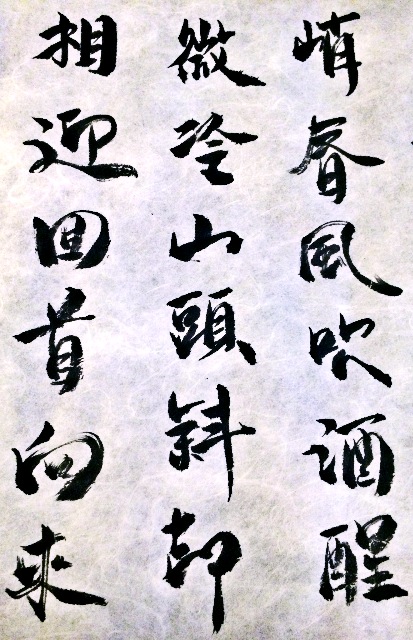 峭春風吹酒醒
微冷山頭斜却
相迎回首向来